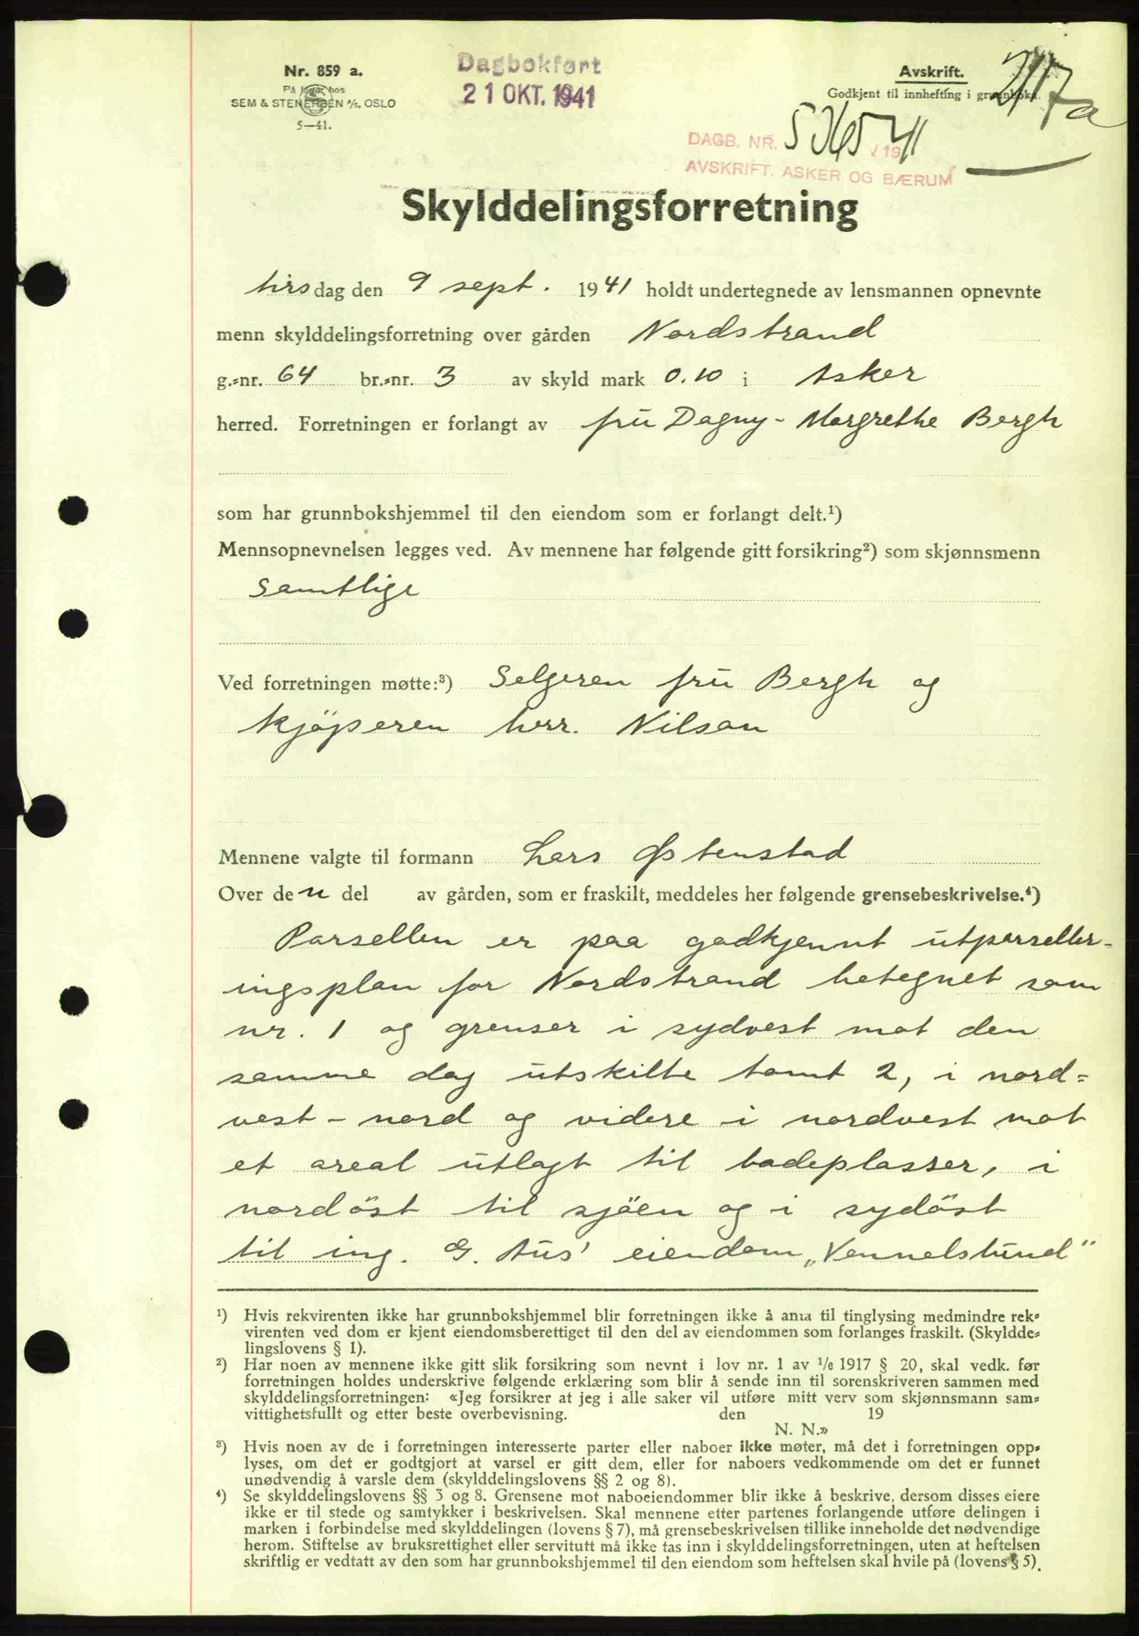 Nr. 859 a.
På lager hos
SEM & STENERSEN A/S, OSLO
5—41.
Dagbokført
21 OKT. 1941
Avskrift.
Godkjent til innhefting i grunnboka.
217a
DAGB. NR. 5365 / 1941
AVSKRIFT. ASKER OG BÆRUM
Skylddelingsforretning
tirsdag den 9 sept. 1941 holdt undertegnede av lensmannen opnevnte
menn skylddelingsforretning over gården Nordstrand
g.-nr. 64 br.-nr. 3 av skyld mark 0.10 i Asker
herred. Forretningen er forlangt av fru Dagny-Margrethe Bergh
som har grunnbokshjemmel til den eiendom som er forlangt delt.¹)
Mennsopnevnelsen legges ved. Av mennene har følgende gitt forsikring²) som skjønnsmenn
samtlige
Ved forretningen møtte:³) Selgeren fru Bergh og
kjöperen herr. Nilson
Mennene valgte til formann Lars Østenstad
Over den del av gården, som er fraskilt, meddeles her følgende grensebeskrivelse.⁴)
Parsellen er paa godkjennt utpareller-
ingsplan for Nordstrand betegnet som
nr. 1 og grenser i sydvest mot den
samme dag utskilte tomt 2, i nord-
vest - nord og videre i nordvest mot
et areal utlagt til badeplasser, i
nordöst til sjöen og i sydöst
til ing. G. Aus' eiendom „Vennelslund"
¹) Hvis rekvirenten ikke har grunnbokshjemmel blir forretningen ikke å anta til tinglysing medmindre rek-
virenten ved dom er kjent eiendomsberettiget til den del av eiendommen som forlanges fraskilt. (Skyldde-
lingslovens § 1).
²) Har noen av mennene ikke gitt slik forsikring som nevnt i lov nr. 1 av 1/6 1917 § 20, skal vedk. før
forretningen holdes underskrive følgende erklæring som blir å sende inn til sorenskriveren sammen med
skylddelingsforretningen: «Jeg forsikrer at jeg i alle saker vil utføre mitt verv som skjønnsmann sam-
vittighetsfullt og etter beste overbevisning. den 19
N. N.»
³) Hvis noen av de i forretningen interesserte parter eller naboer ikke møter, må det i forretningen opp-
lyses, om det er godtgjort at varsel er gitt dem, eller for naboers vedkommende om det er funnet
unødvendig å varsle dem (skylddelingslovens §§ 2 og 8).
⁴) Se skylddelingslovens §§ 3 og 8. Grensene mot naboeiendommer blir ikke å beskrive, dersom disses eiere
ikke er til stede og samtykker i beskrivelsen. Skal mennene etter partenes forlangende utføre delingen i
marken i forbindelse med skylddelingen (lovens § 7), må grensebeskrivelsen tillike inneholde det nødvendige
herom. Stiftelse av bruksrettighet eller servitutt må ikke tas inn i skylddelingsforretningen, uten at heftelsen
skriftlig er vedtatt av den som har grunnbokshjemmel til den eiendom som heftelsen skal hvile på (lovens § 5).